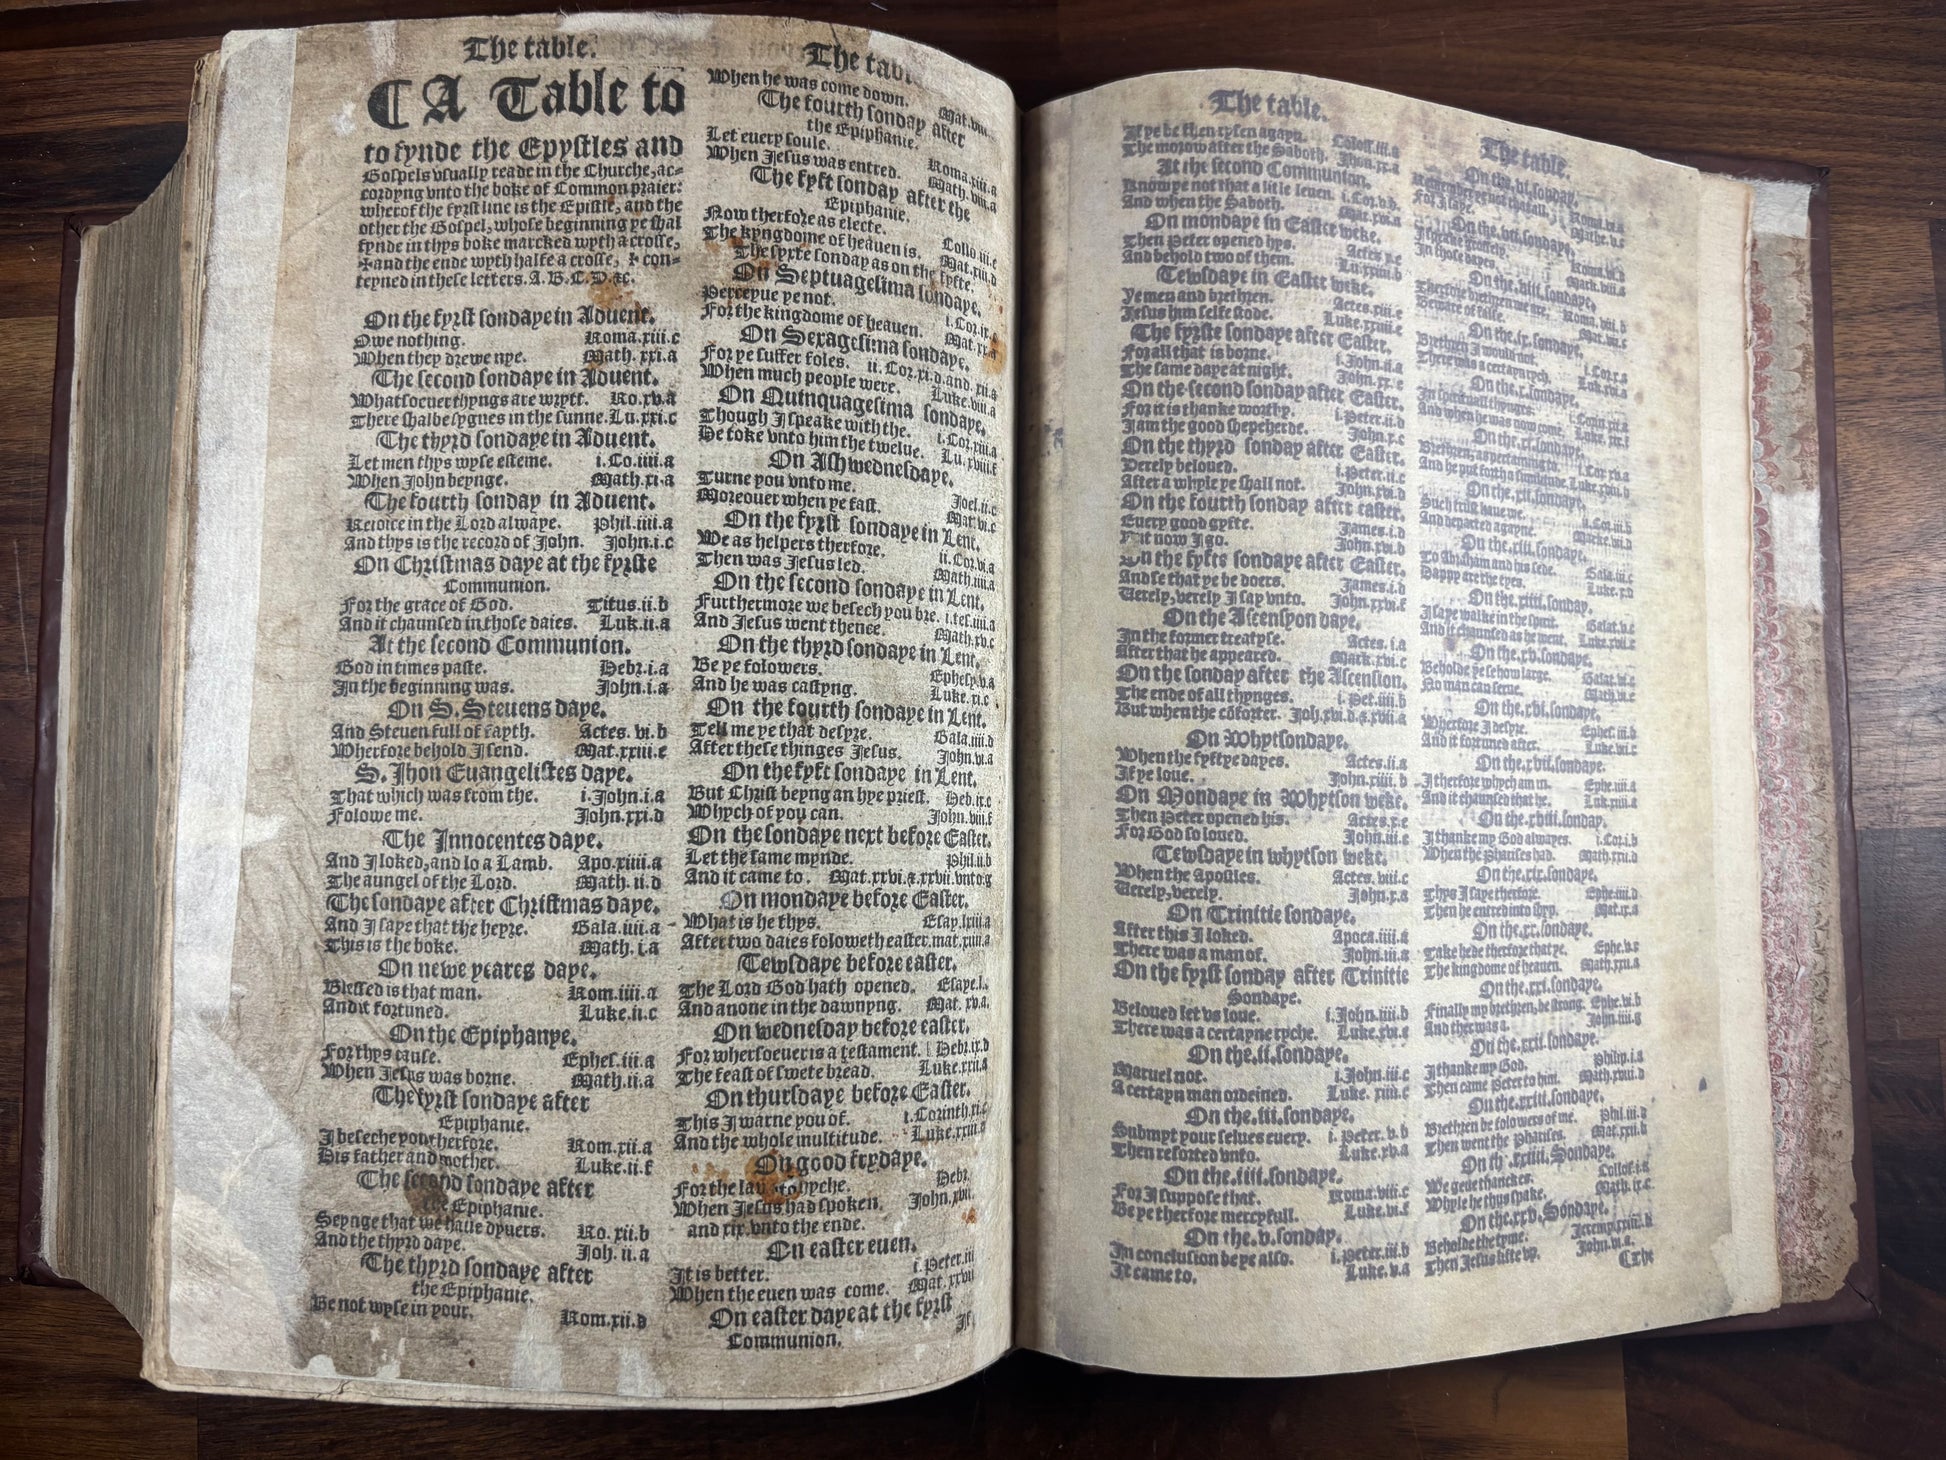 The table.
¶ A Table to
to fynde the Epystles and
Gospels vsually reade in the Churche, ac-
cordyng vnto the boke of Common praier:
wherof the fyrst line is the Epistle, and the
other the Gospel, whose beginning ye shal
fynde in thys boke marcked wyth a crosse,
✠ and the ende wyth halfe a crosse, ⸸ con-
teyned in these letters. A. B. C. D. &c.
On the fyrst sondaye in Aduent.
Owe nothing. Roma.xiii.c
When they drewe nye. Math. xxi.a
The second sondaye in Aduent.
Whatsoeuer thyngs are wrytt. Ro.xv.a
There shalbe sygnes in the sunne. Lu.xxi.c
The thyrd sondaye in Aduent.
Let men thys wyse esteme. i.Co.iiii.a
When John beynge. Math.xi.a
The fourth sonday in Aduent.
Reioice in the Lord alwaye. Phil.iiii.a
And thys is the record of John. John.i.c
On Christmas daye at the fyrste
Communion.
For the grace of God. Titus.ii.b
And it chaunsed in those daies. Luk.ii.a
At the second Communion.
God in times paste. Hebr.i.a
In the beginning was. John.i.a
On S. Steuens daye.
And Steuen full of fayth. Actes. vi.b
Wherfore behold I send. Mat.xxiii.e
S. Jhon Euangelistes daye.
That which was from the. i.John.i.a
Folowe me. John.xxi.d
The Innocentes daye.
And I loked, and lo a Lamb. Apo.xiiii.a
The aungel of the Lord. Math. ii.d
The sondaye after Christmas daye.
And I saye that the heyre. Gala.iiii.a
This is the boke. Math. i.a
On newe yeares daye.
Blessed is that man. Rom.iiii.a
And it fortuned. Luke.ii.c
On the Epiphanye.
For thys cause. Ephes.iii.a
When Jesus was borne. Math.ii.a
The fyrst sondaye after
Epiphanie.
I beseche you therfore. Rom.xii.a
His father and mother. Luke.ii.f
The second sondaye after
the Epiphanie.
Seynge that we haue dyuers. Ro. xii.b
And the thyrd daye. Joh. ii.a
The thyrd sondaye after
the Epiphanie.
Be not wyse in your. Rom.xii.d
The tabl
When he was come down. Mat.viii.
The fourth sonday after
the Epiphanie.
Let euery soule. Roma.xiii.a
When Jesus was entred. Math.viii.a
The fyft sonday after the
Epiphanie.
Now therfore as electe. Collo.iii.c
The kyngdome of heauen is. Mat.xiii.d
The syxte sonday as on the fyfte.
On Septuagesima sondaye.
Perceyue ye not. i.Cor.ix.
For the kingdome of heauen. Mat.xx.a
On Sexagesima sondaye.
For ye suffer foles. ii.Cor.xi.d.and.xii.a
When much people were. Luke.viii.a
On Quinquagesima sondaye.
Though I speake with the. i.Cor.xiii.a
He toke vnto him the twelue. Lu.xviii.f
On Ashwednesdaye.
Turne you vnto me. Joel.ii.c
Moreouer when ye fast. Mat.vi.c
On the fyrst sondaye in Lent.
We as helpers therfore. ii.Cor.vi.a
Then was Jesus led. Math.iiii.a
On the second sondaye in Lent.
Furthermore we besech you bre. i.tes.iiii.a
And Jesus went thence. Math.xv.c
On the thyrd sondaye in Lent.
Be ye folowers. Ephesy.v.a
And he was castyng. Luke.xi.c
On the fourth sondaye in Lent.
Tell me ye that desyre. Gala.iiii.d
After these thinges Jesus. John.vi.a
On the fyft sondaye in Lent.
But Christ beyng an hye priest. Heb.ix.c
Whych of you can. John.viii.f
On the sondaye next before Easter.
Let the same mynde. Phil.ii.b
And it came to. Mat.xxvi.&.xxvii.vnto.g
On mondaye before Easter.
What is he thys. Esay.lxiii.a
After two daies foloweth easter. mat.xiiii.a
Tewsdaye before easter.
The Lord God hath opened. Esaye.l.
And anone in the dawnyng. Mat. xv.a.
On wednesday before easter.
For whersoeuer is a testament. Hebr.ix.d
The feast of swete bread. Luke.xxii.a
On thursdaye before Easter.
This I warne you of. i.Corinth.xi.c
And the whole multitude. Luke.xxiii.
On good frydaye.
For the law whyche. Hebr.
When Jesus had spoken. John.xvii.
and xix.vnto the ende.
On easter euen.
It is better. i.Peter.iii
When the euen was come. Mat.xxvii
On easter daye at the fyrst
Communion.
If
The table.
If ye be then rysen agayn. Coloss.iii.a
The morow after the Saboth. Jhon.xx.a
At the second Communion.
Know ye not that a litle leuen. i.Cor.v.b
And when the Saboth. Mar.xvi.a
On mondaye in Easter weke.
Then Peter opened hys. Actes.x.e
And behold two of them. Lu.xxiiii.b
Tewsdaye in Easter weke.
Ye men and brethren. Actes.xiii.e
Jesus him selfe stode. Luke.xxiiii.e
The fyrste sondaye after Easter.
For all that is borne. i.John.ii.a
The same daye at night. John.xx.e
On the second sondaye after Easter.
For it is thanke worthy. i.Peter.ii.d
I am the good shepeherde. John.x.c
On the thyrd sonday after Easter.
Derely beloued. i.Peter.ii.c
After a whyle ye shall not. John.xvi.d
On the fourth sonday after easter.
Euery good gyfte. James.i.d
But now I go. John.xvi.b
On the fyfte sondaye after Easter.
And se that ye be doers. James.i.d
Verely, verely I say vnto. John.xxvi.f
On the Ascensyon daye.
In the former treatyse. Actes.i.a
After that he appeared. Mark.xvi.c
On the sonday after the Ascension.
The ende of all thynges. i.Pet.iiii.b
But when the cōforter. Joh.xvi.d.&.xvii.a
On Whytsondaye.
When the fyftye dayes. Actes.ii.a
If ye loue. John.xiiii.b
On Mondaye in Whytson weke.
Then Peter opened his. Actes.x.e
For God so loued. John.iii.c
Tewsdaye in whytson weke.
When the Apostles. Actes.viii.c
Verely, verely. John.x.a
On Trinitie sondaye.
After this I loked. Apoca.iiii.a
There was a man of. John.iii.a
On the fyrst sonday after Trinitie
Sondaye.
Beloued let vs loue. i.John.iiii.b
There was a certayne ryche. Luke.xvi.e
On the.ii.sondaye.
Maruel not. i.John.iii.c
A certayn man ordeined. Luke. xiiii.c
On the.iii.sondaye.
Submyt your selues euery. i.Peter.v.b
Then resorted vnto. Luke.xv.a
On the.iiii.sondaye.
For I suppose that. Roma.viii.c
Be ye therfore mercyfull. Luke.vi.f
On the.v.sonday.
In conclusion be ye also. i.peter.iii.b
It came to. Luke.v.a
The table.
On the.vi.sonday.
Remember ye not that all. Roma.vi.a
For I saye. Mathe.v.c
On the.vii.sondaye.
I speake grossely. Roma.vi.d
In those dayes. Mark.viii.a
On the.viii.sondaye.
Therfore brethren we are. Roma.viii.b
Beware of false. Mat.vii.c
On the.ix.sondaye.
Brethren I would not. i.Cor.x.a
There was a certayn rych. Luk.xvi.a
On the.x.sondaye.
In spirituall thynges. i.Corin.xii.a
And when he was now come. Luke.xix.f
On the.xi.sondaye.
Brethren, as pertaining to. i.Cor.xv.a
And he put forth a similitude. Luke.xviii.b
On the.xii.sondaye.
Such trust haue we. ii.Cor.iii.b
And departed agayne. Marke.vii.d
On the.xiii.sondaye.
To Abraham and his sede. Gala.iii.c
Happy are the eyes. Luke.x.d
On the.xiiii.sonday.
I saye walke in the spirit. Galat.v.c
And it chaunsed as he went. Luke.xvii.c
On the.xv.sondaye.
Beholde ye se how large. Galat.vi.c
No man can serue. Math.vi.c
On the.xvi.sondaye.
Wherfore I desyre. Ephes.iii.b
And it fortuned after. Luke.vii.c
On the.xvii.sondaye.
I therfore whych am in. Ephe.iiii.a
And it chaunsed that he. Luk.xiiii.a
On the.xviii.sonday.
I thanke my God alwayes. i.Cor.i.b
When the Pharises had. Math.xxii.d
On the.xix.sondaye.
Thys I saye therfore. Ephe.iiii.d
Then he entred into shyp. Mat.ix.a
On the.xx.sondaye.
Take hede therfore that ye. Ephe.v.c
The kingdome of heauen. Math.xxii.a
On the.xxi.sondaye.
Finally my brethren, be strong. Ephe.vi.b
And ther was a. John.iiii.g
On the.xxii.sondaye.
I thanke my God. Philip.i.a
Then came Peter to him. Math.xviii.d
On the.xxiii.sondaye.
Brethren be folowers of me. Phil.iii.d
Then went the Pharises. Mat.xxii.b
On the.xxiiii.Sondaye.
We geue thanckes. Collos.i.a
Whyle he thus spake. Math.ix.c
On the.xxv.Sondaye.
Beholde the tyme. Jeremy.xxiii.b
Then Jesus lifte vp. John.vi.a
¶ The